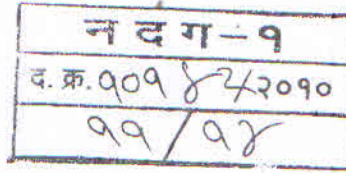 न द ग - १
द. क्र. १०१४५/२०१०
११/१४